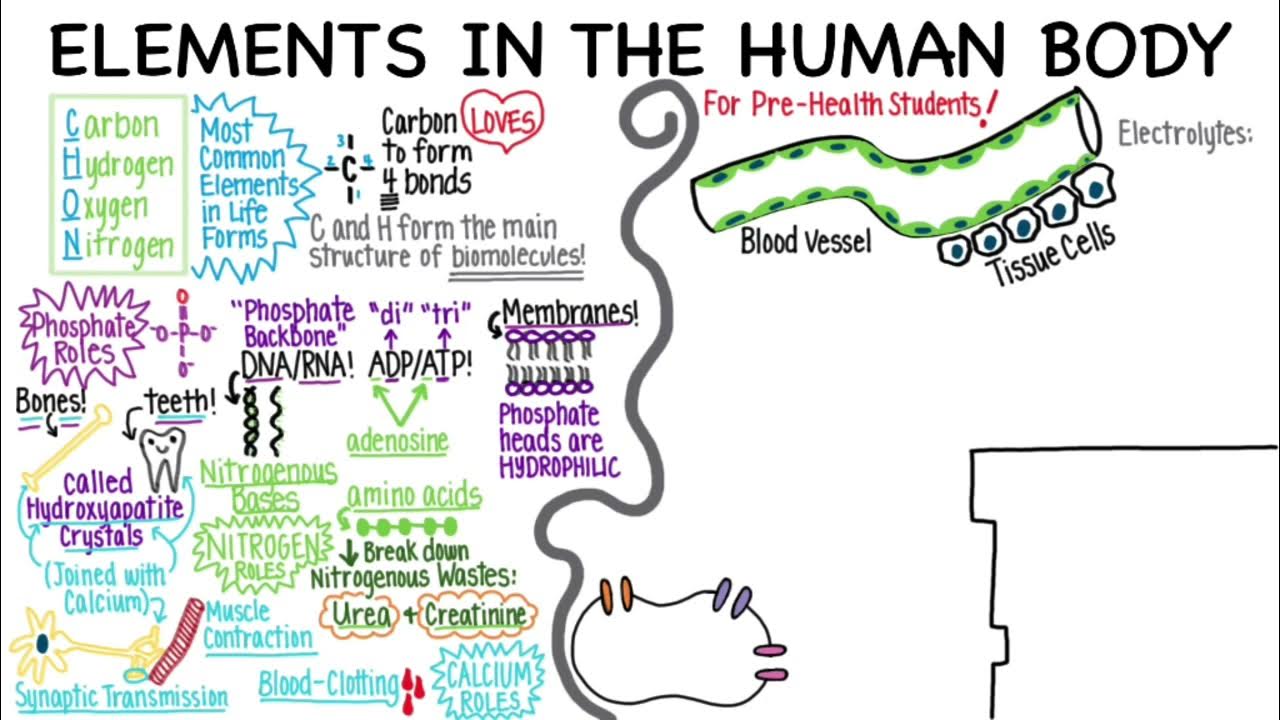 ELEMENTS IN THE HUMAN BODY
Carbon
Hydrogen
Oxygen
Nitrogen
Most
Common
Elements
in Life
Forms
3
2 -C- 4
1
Carbon LOVES
to form
4 bonds
C and H form the main
structure of biomolecules!
For Pre-Health Students!
Electrolytes:
Blood Vessel
Tissue Cells
Phosphate
Roles
O
-O-P-O-
O-
"Phosphate
Backbone"
"di" "tri"
DNA/RNA! ADP/ATP!
adenosine
Membranes!
Phosphate
heads are
HYDROPHILIC
Bones!
teeth!
called
Hydroxyapatite
Crystals
(Joined with
Calcium)
Nitrogenous
Bases
NITROGEN
ROLES
amino acids
Break down
Nitrogenous Wastes:
Urea + Creatinine
Muscle
Contraction
Synaptic Transmission
Blood-Clotting
CALCIUM
ROLES